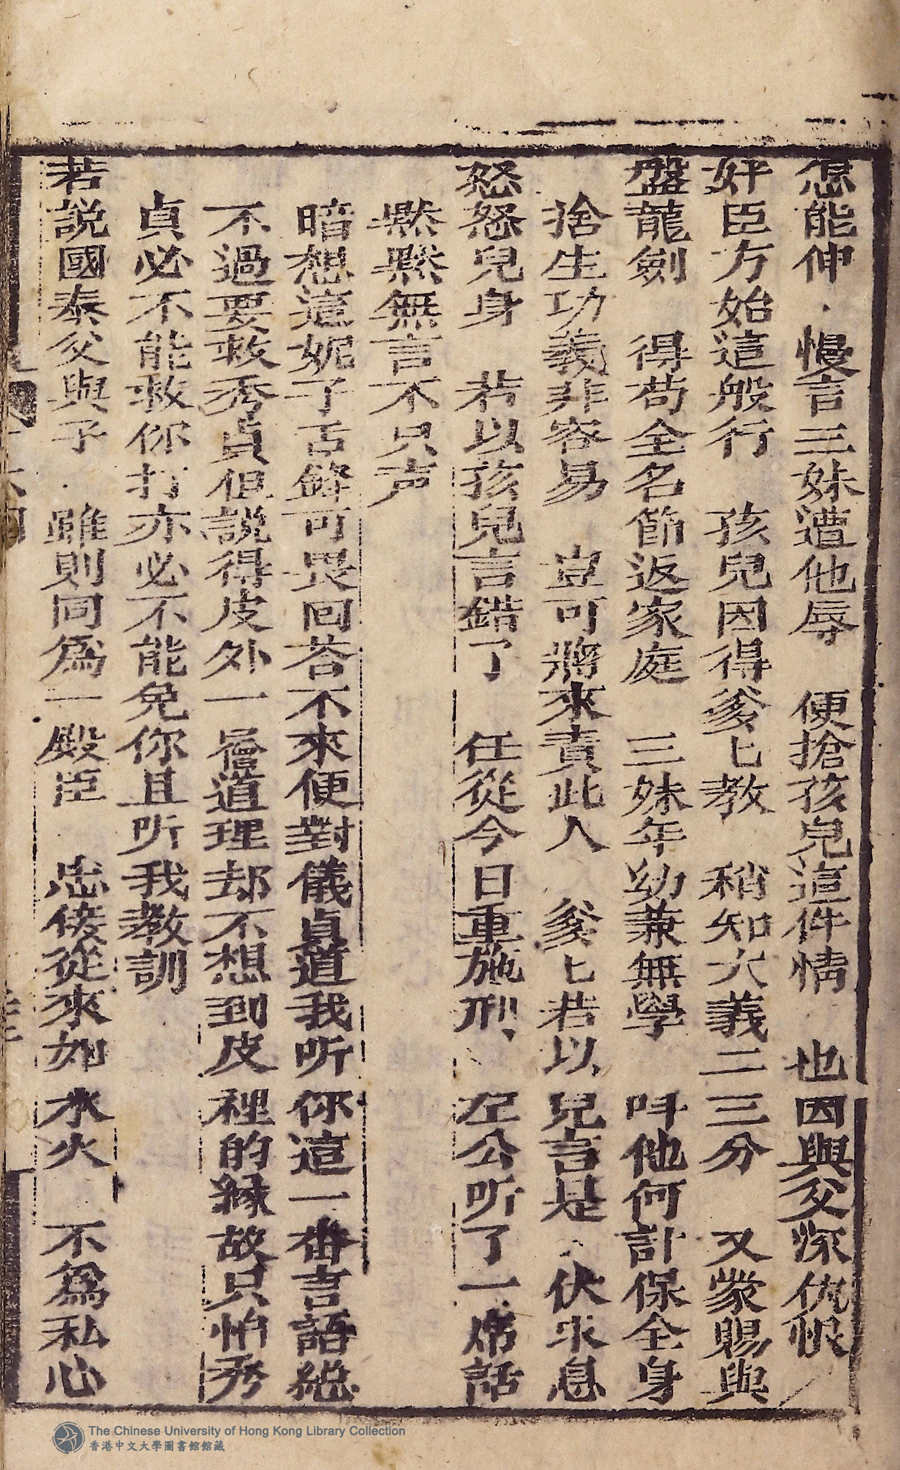 怎能伸 慢言三妹遭他辱 便搶孩兒這件情 也因與父深仇恨
奸臣方始這般行 孩兒因得爹匕教 稍知大義二三分 又蒙賜與
盤龍劍 得苟全名節返家庭 三妹年幼兼無學 呌他何計保全身
捨生功義非容易 豈可將來責此人 爹匕若以兒言是 伏乑息
怒恕兒身 若以孩兒言錯了 任從今日重施刑 左公听了一席話
黙黙無言不只声
暗想這妮子舌鋒可畏回荅不來便對儀貞道我听你這一番言語総
不過要救秀貞但説得皮外一層道理却不想到皮裡的緣故只怕秀
貞必不能救你打亦必不能免你且听我教訓
若説國泰父與子 雖則同為一殿臣 忠佞從來如水火 不為私心
The Chinese University of Hong Kong Library Collection
香港中文大學圖書館館藏